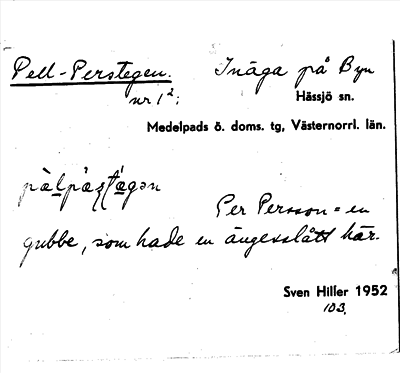 Pell-Perstegen. Inäga på Byn
nr 1²; Hässjö sn.
Medelpads ö. doms. tg, Västernorrl. län.
Per Persson = en
gubbe, som hade en ängesslått här.
Sven Hiller 1952
103.